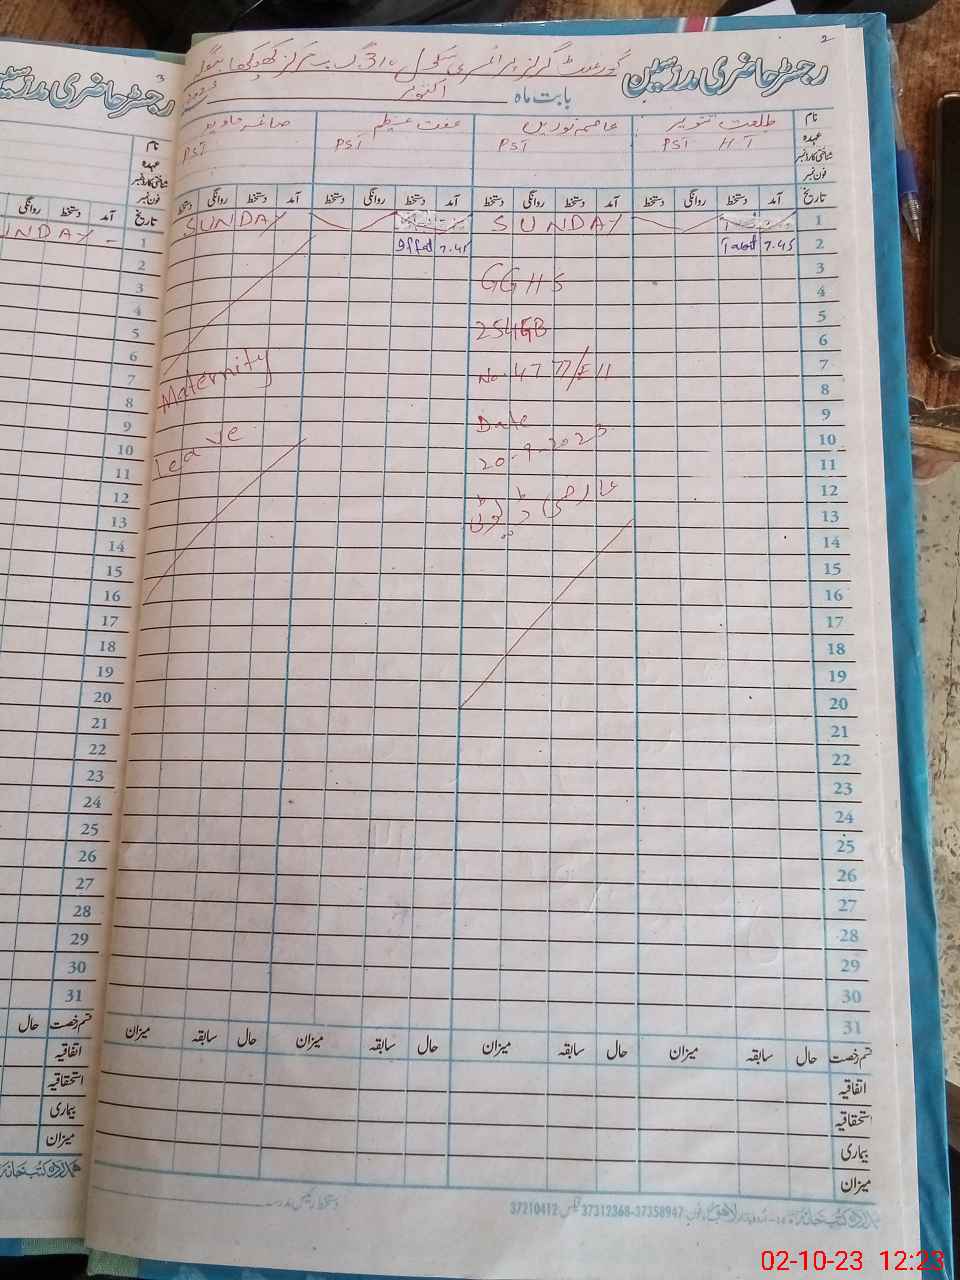 2
رجسٹر حاضری مدرسین
گورنمنٹ گرلز پرائمری سکول 310 گ ب
بابت ماہ اکتوبر
نام طلعت تنویر عاصمہ نورین عفت عظیم صائمہ جاوید
عہدہ PST HT PST PST PST
شناختی کارڈ نمبر
فون نمبر
تاریخ آمد دستخط روانگی دستخط آمد دستخط روانگی دستخط آمد دستخط روانگی دستخط آمد دستخط روانگی دستخط
1 SUNDAY SUNDAY
2 7.45 7.45 Iffat
3
4 GGHS
5
6 254GB
7 No. 4777/EII Maternity
8
9 Date
10 20-9-2023 Leave
11
12 عارضی ڈیوٹی
13
14
15
16
17
18
19
20
21
22
23
24
25
26
27
28
29
30
31
قسم رخصت حال سابقہ میزان حال سابقہ میزان حال سابقہ میزان حال سابقہ میزان
اتفاقیہ
استحقاقیہ
بیماری
میزان
دستخط رئیس مدرسہ
ہمدرد کتب خانہ لاہور فون 37312368-37358947 فیکس 37210412
3
رجسٹر حاضری مدرسین
نام
عہدہ
شناختی کارڈ نمبر
فون نمبر
تاریخ آمد دستخط روانگی
1 UNDAY
2
3
4
5
6
7
8
9
10
11
12
13
14
15
16
17
18
19
20
21
22
23
24
25
26
27
28
29
30
31
قسم رخصت حال
اتفاقیہ
استحقاقیہ
بیماری
میزان
ہمدرد کتب خانہ
02-10-23 12:23